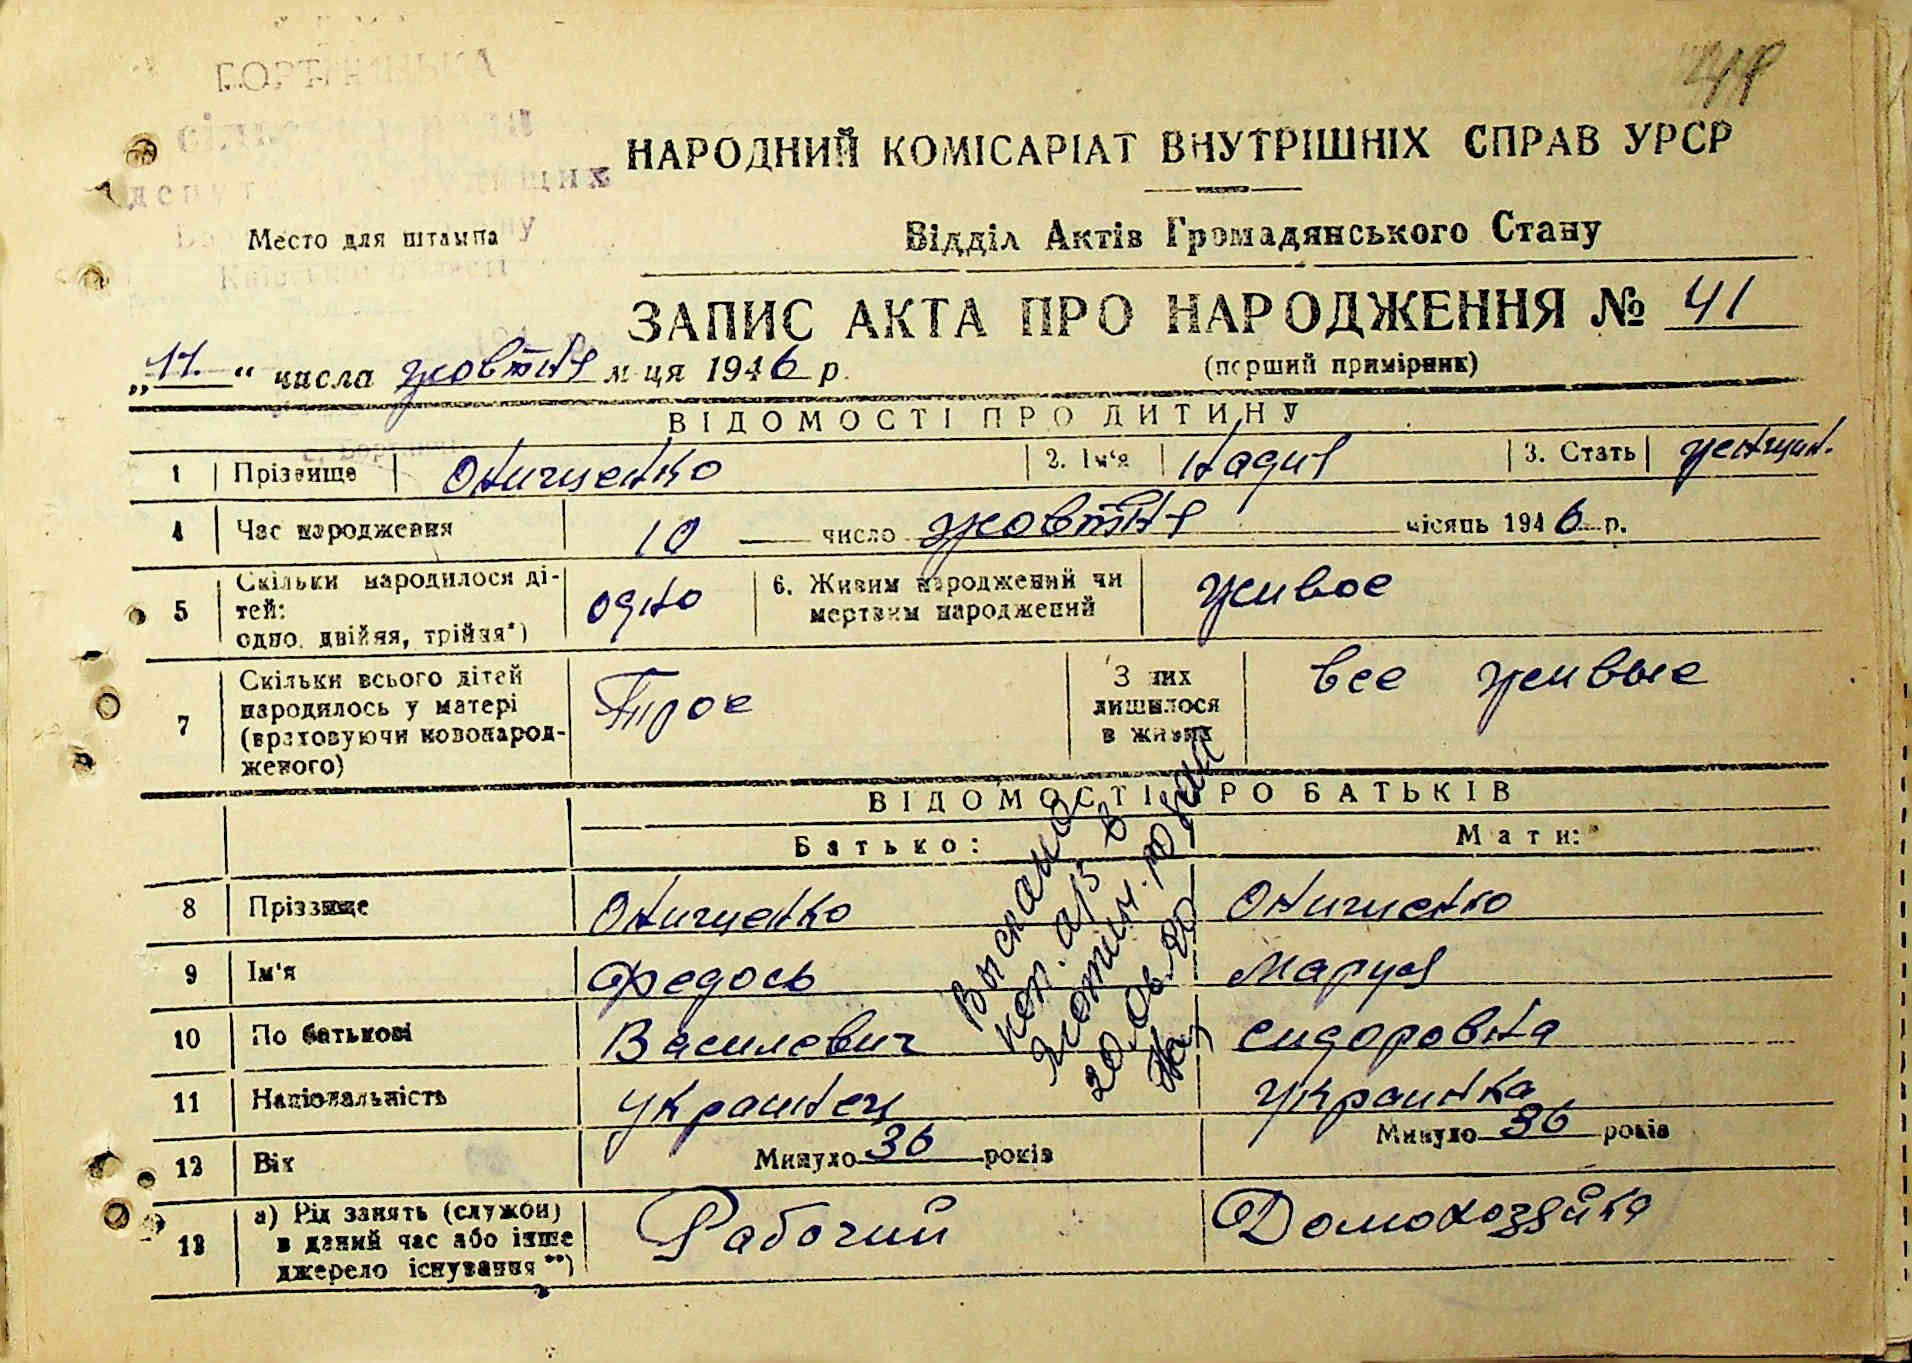 НАРОДНИЙ КОМІСАРІАТ ВНУТРІШНІХ СПРАВ УРСР
Место для штампа
Відділ Актів Громадянського Стану
ЗАПИС АКТА ПРО НАРОДЖЕННЯ № 41
(перший примірник)
„11.“ числа жовтня м-ця 1946 р.
ВІДОМОСТІ ПРО ДИТИНУ
1 Прізвище Онищенко 2. Ім'я Надия 3. Стать женщин.
4 Час народження 10 число жовтня місяць 1946 р.
5 Скільки народилося ді-
тей:
одно, двійня, трійня*)
одно
6. Живим народжений чи
мертвим народжений
живое
7 Скільки всього дітей
народилось у матері
(враховуючи новонарод-
женого)
Трое
З них
лишилося
в живих
все живые
ВІДОМОСТІ ПРО БАТЬКІВ
Батько: Мати:
8 Прізвище Онищенко Онищенко
9 Ім'я Федось Мария
10 По батькові Василевич Сидоровна
11 Національність Украинец Украинка
12 Вік Минуло 36 років Минуло 36 років
13 а) Рід занять (служби)
в даний час або інше
джерело існування**)
Рабочий Домохозяйка